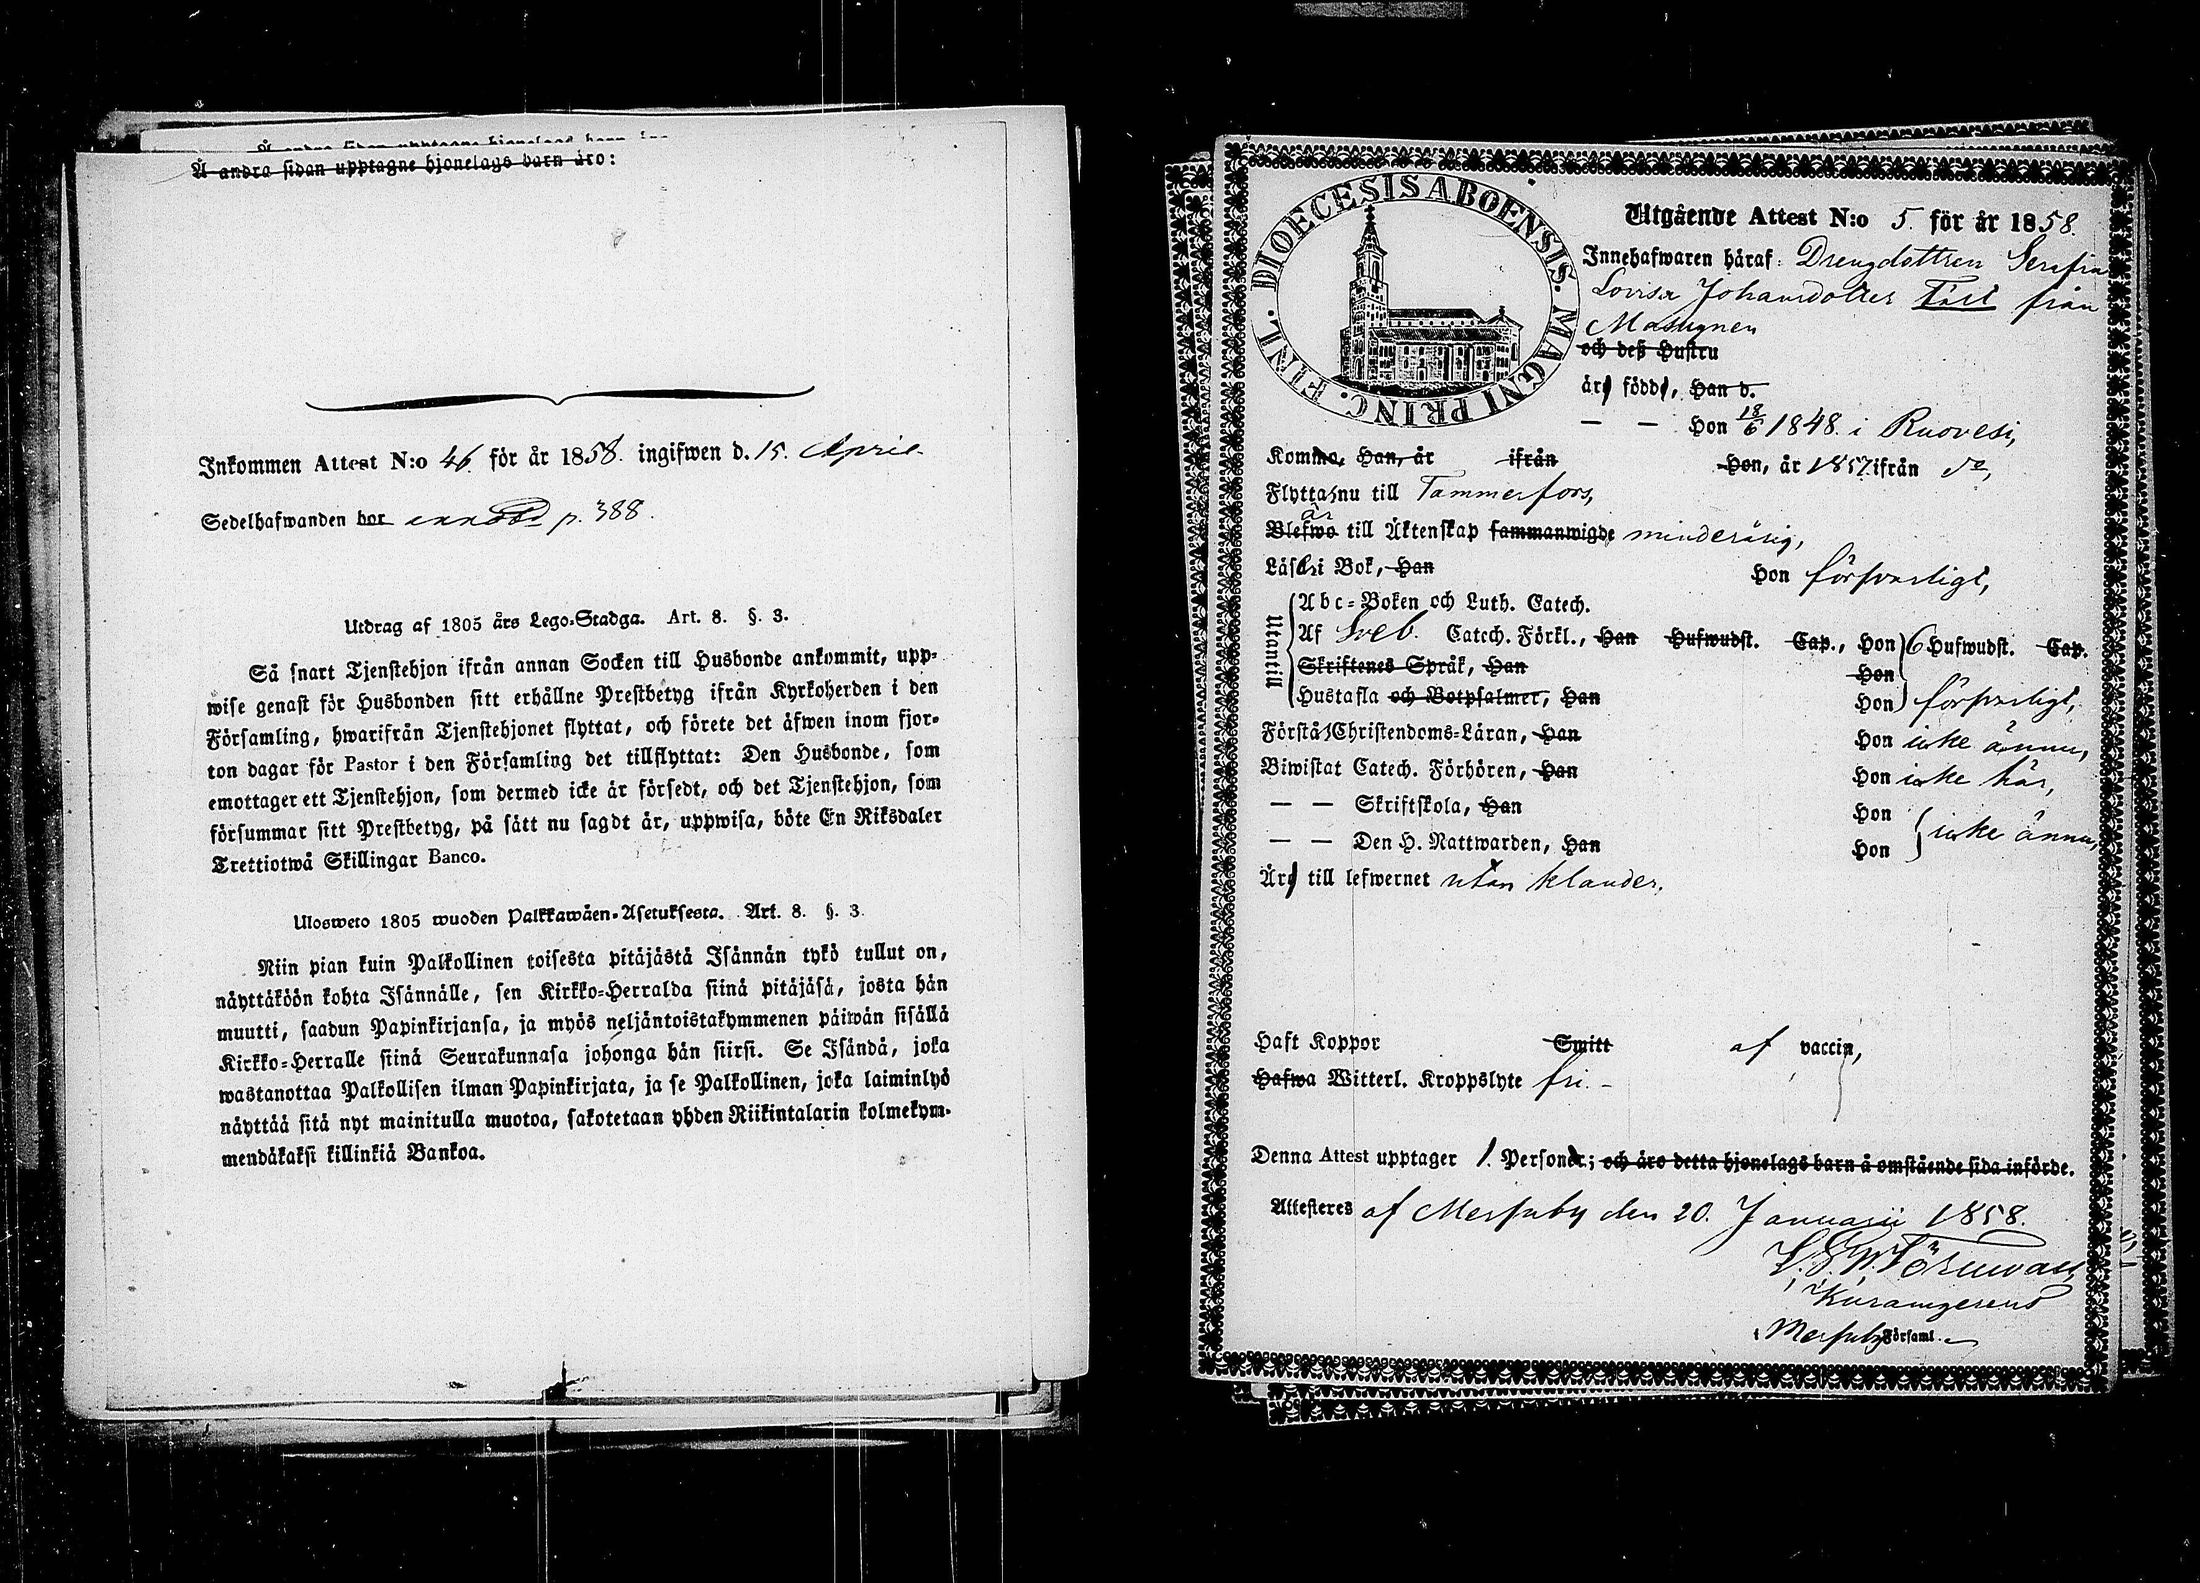 Å andra sidan upptagne hjonelags barn äro:
Inkommen Attest N:o 46 för år 1858. ingifwen d. 15. April
Sedelhafwanden bor p. 388.
Utdrag af 1805 års Lego-Stadga. Art. 8. §. 3.
Så snart Tjenstehjon ifrån annan Socken till Husbonde ankommit, upp-
wise genast för Husbonden sitt erhållne Prestbetyg ifrån Kyrkoherden i den
Församling, hwarifrån Tjenstehjonet flyttat, och förete det äfwen inom fjor-
ton dagar för Pastor i den Församling det tillflyttat: Den Husbonde, som
emottager ett Tjenstehjon, som dermed icke är försedt, och det Tjenstehjon, som
försummar sitt Prestbetyg, på sätt nu sagdt är, uppwisa, böte En Riksdaler
Trettiotwå Skillingar Banco.
Ulosweto 1805 wuoden Palkkawäen-Asetuksesta. Art. 8. §. 3.
Niin pian kuin Palkollinen toisesta pitäjästä Isännän tykö tullut on,
näyttäköön kohta Isännälle, sen Kirkko-Herralda siinä pitäjäsä, josta hän
muutti, saadun Papinkirjansa, ja myös neljäntoistakymmenen päiwän sisällä
Kirkko-Herralle siinä Seurakunnasa johonga hän siirsi. Se Isändä, joka
wastanottaa Palkollisen ilman Papinkirjata, ja se Palkollinen, joka laiminlyö
näyttää sitä nyt mainitulla muotoa, sakotetaan yhden Riikintalarin kolmekym-
mendäkaksi killinkiä Bankoa.
DIOECESIS ABOENSIS. MAGNI PRINC. FINL.
Utgående Attest N:o 5. för år 1858.
Innehafwaren häraf: Drengdottren Serafia
Lovisa Johansdotter från
Masugnen
och deß Hustru
äro födde, Han d.
— — Hon 18/6 1848. i Ruovesi,
Komma, Han, år ifrån Hon, år 1857 ifrån do,
Flytta nu till Tammerfors,
är
Blefwo till Äktenskap sammanwigde minderårig,
Läsa i Bok, Han Hon försvarligt,
Utantill
Abc-Boken och Luth. Catech.
Af Sveb. Catech. Förkl., Han Hufwudst. Cap., Hon 6 Hufwudst. Cap.
Skriftenes Språk, Han Hon
Hustafla och Botpsalmer, Han Hon försvarligt,
Förstå Christendoms-Läran, Han Hon icke ännu,
Biwistat Catech. Förhören, Han Hon icke här,
— — Skriftskola, Han Hon
— — Den H. Nattwarden, Han Hon icke ännu,
Äro till lefwernet utan klander.
Haft Koppor Smitt af vaccin,
Hafwa Witterl. Kroppslyte fri. -
Denna Attest upptager 1. Personer; och äro detta hjonelags barn å omstående sida införde.
Attesteres af Messuby den 20. Januarii 1858.
Törnwall
i Messuby Församl.